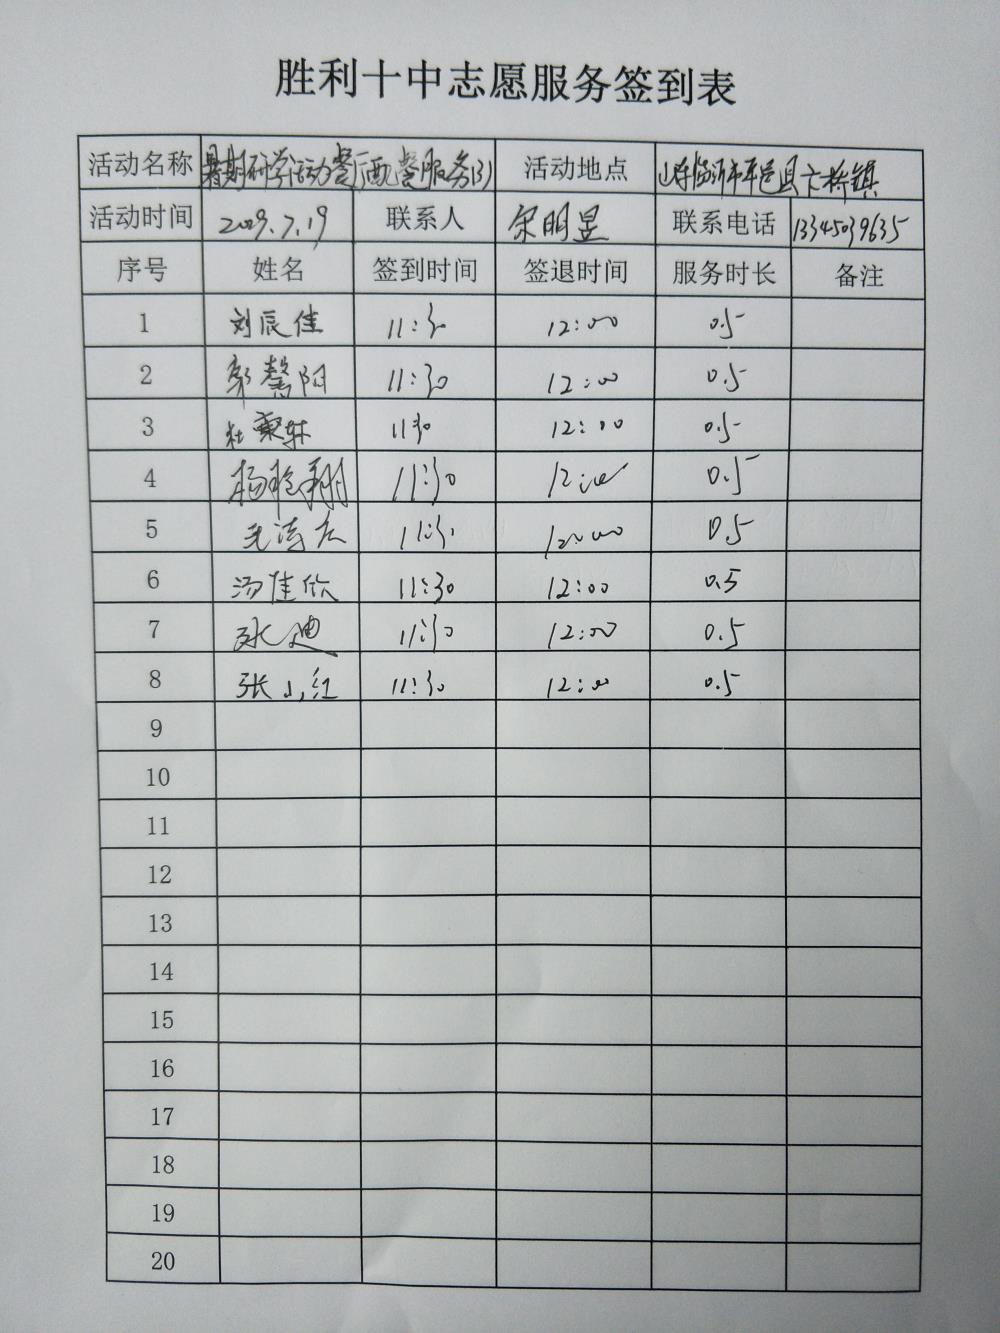 胜利十中志愿服务签到表
活动名称 暑期研学活动餐厅配餐服务(3) 活动地点 山东临沂市平邑县卞桥镇
活动时间 2019.7.19 联系人 宋明昱 联系电话 13345039635
序号 姓名 签到时间 签退时间 服务时长 备注
1 刘辰佳 11:30 12:00 0.5
2 郭馨阳 11:30 12:00 0.5
3 杜 11:30 12:00 0.5
4 杨 翔 11:30 12:00 0.5
5 11:30 12:00 0.5
6 汤佳欣 11:30 12:00 0.5
7 张迪 11:30 12:00 0.5
8 张小红 11:30 12:00 0.5
9
10
11
12
13
14
15
16
17
18
19
20